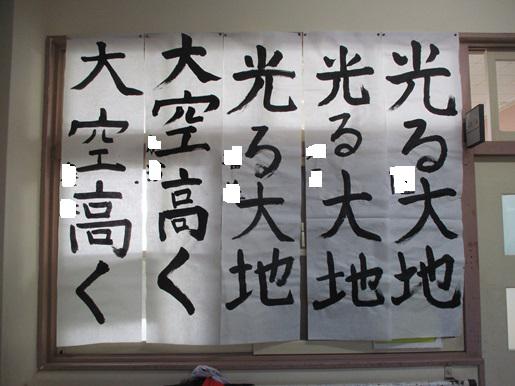 光る大地
光る大地
光る大地
大空高く
大空高く